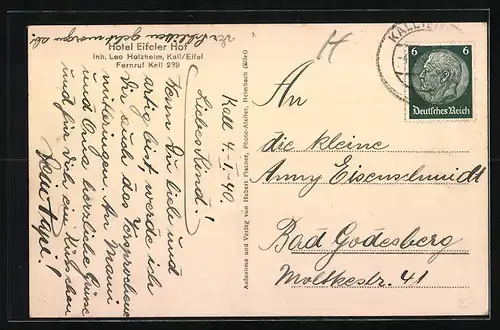 Der Schleifstein geht morgen ab.
Hotel Eifeler Hof
Inh. Leo Holzheim, Kall/Eifel
Fernruf Kall 239
Kall 4-I-40
Liebes Kind!
Wenn Du lieb und
artig bist werde ich
Dir auch das Versprochene
mitbringen. An Mami
und Omi herzliche Grüsse
und für Dich ein Küsschen
Dein Papi!
Aufnahme und Verlag von Hubert Fischer, Photo-Atelier, Heimbach (Eifel)
KALL
6 6
Deutsches Reich
An
die kleine
Anny Eisenschmidt
Bad Godesberg
Moltkestr. 41